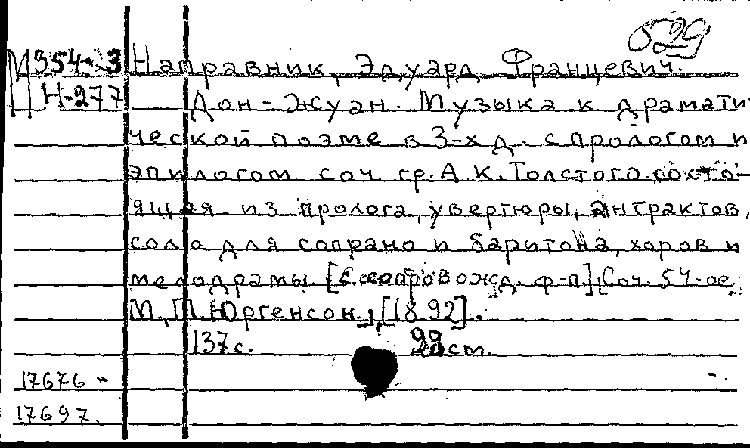 529
М 954-3 Направник, Эдуард Францевич.
Н-277 Дон-Жуан. Музыка к драмати-
ческой поэме в 3-х д. с прологом и
эпилогом соч. гр. А.К. Толстого состо-
ящая из пролога, увертюры, антрактов,
соло для сопрано и баритона, хоров и
мелодрамы [с сопровожд. ф-п] Соч. 54-ое.
М., П. Юргенсон, [1892].
137 с. см.
17676-
17697.